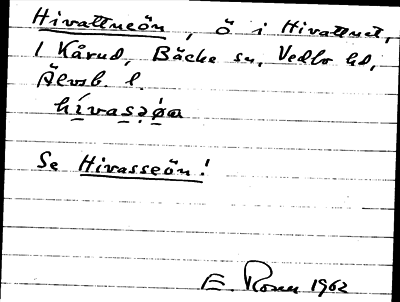 Hivattneön, ö i Hivattnet,
1 Kårud, Bäcke sn, Vedbo hd,
Älvsb. l.
hívasəøa
Se Hivasseön!
E. Rosen 1962